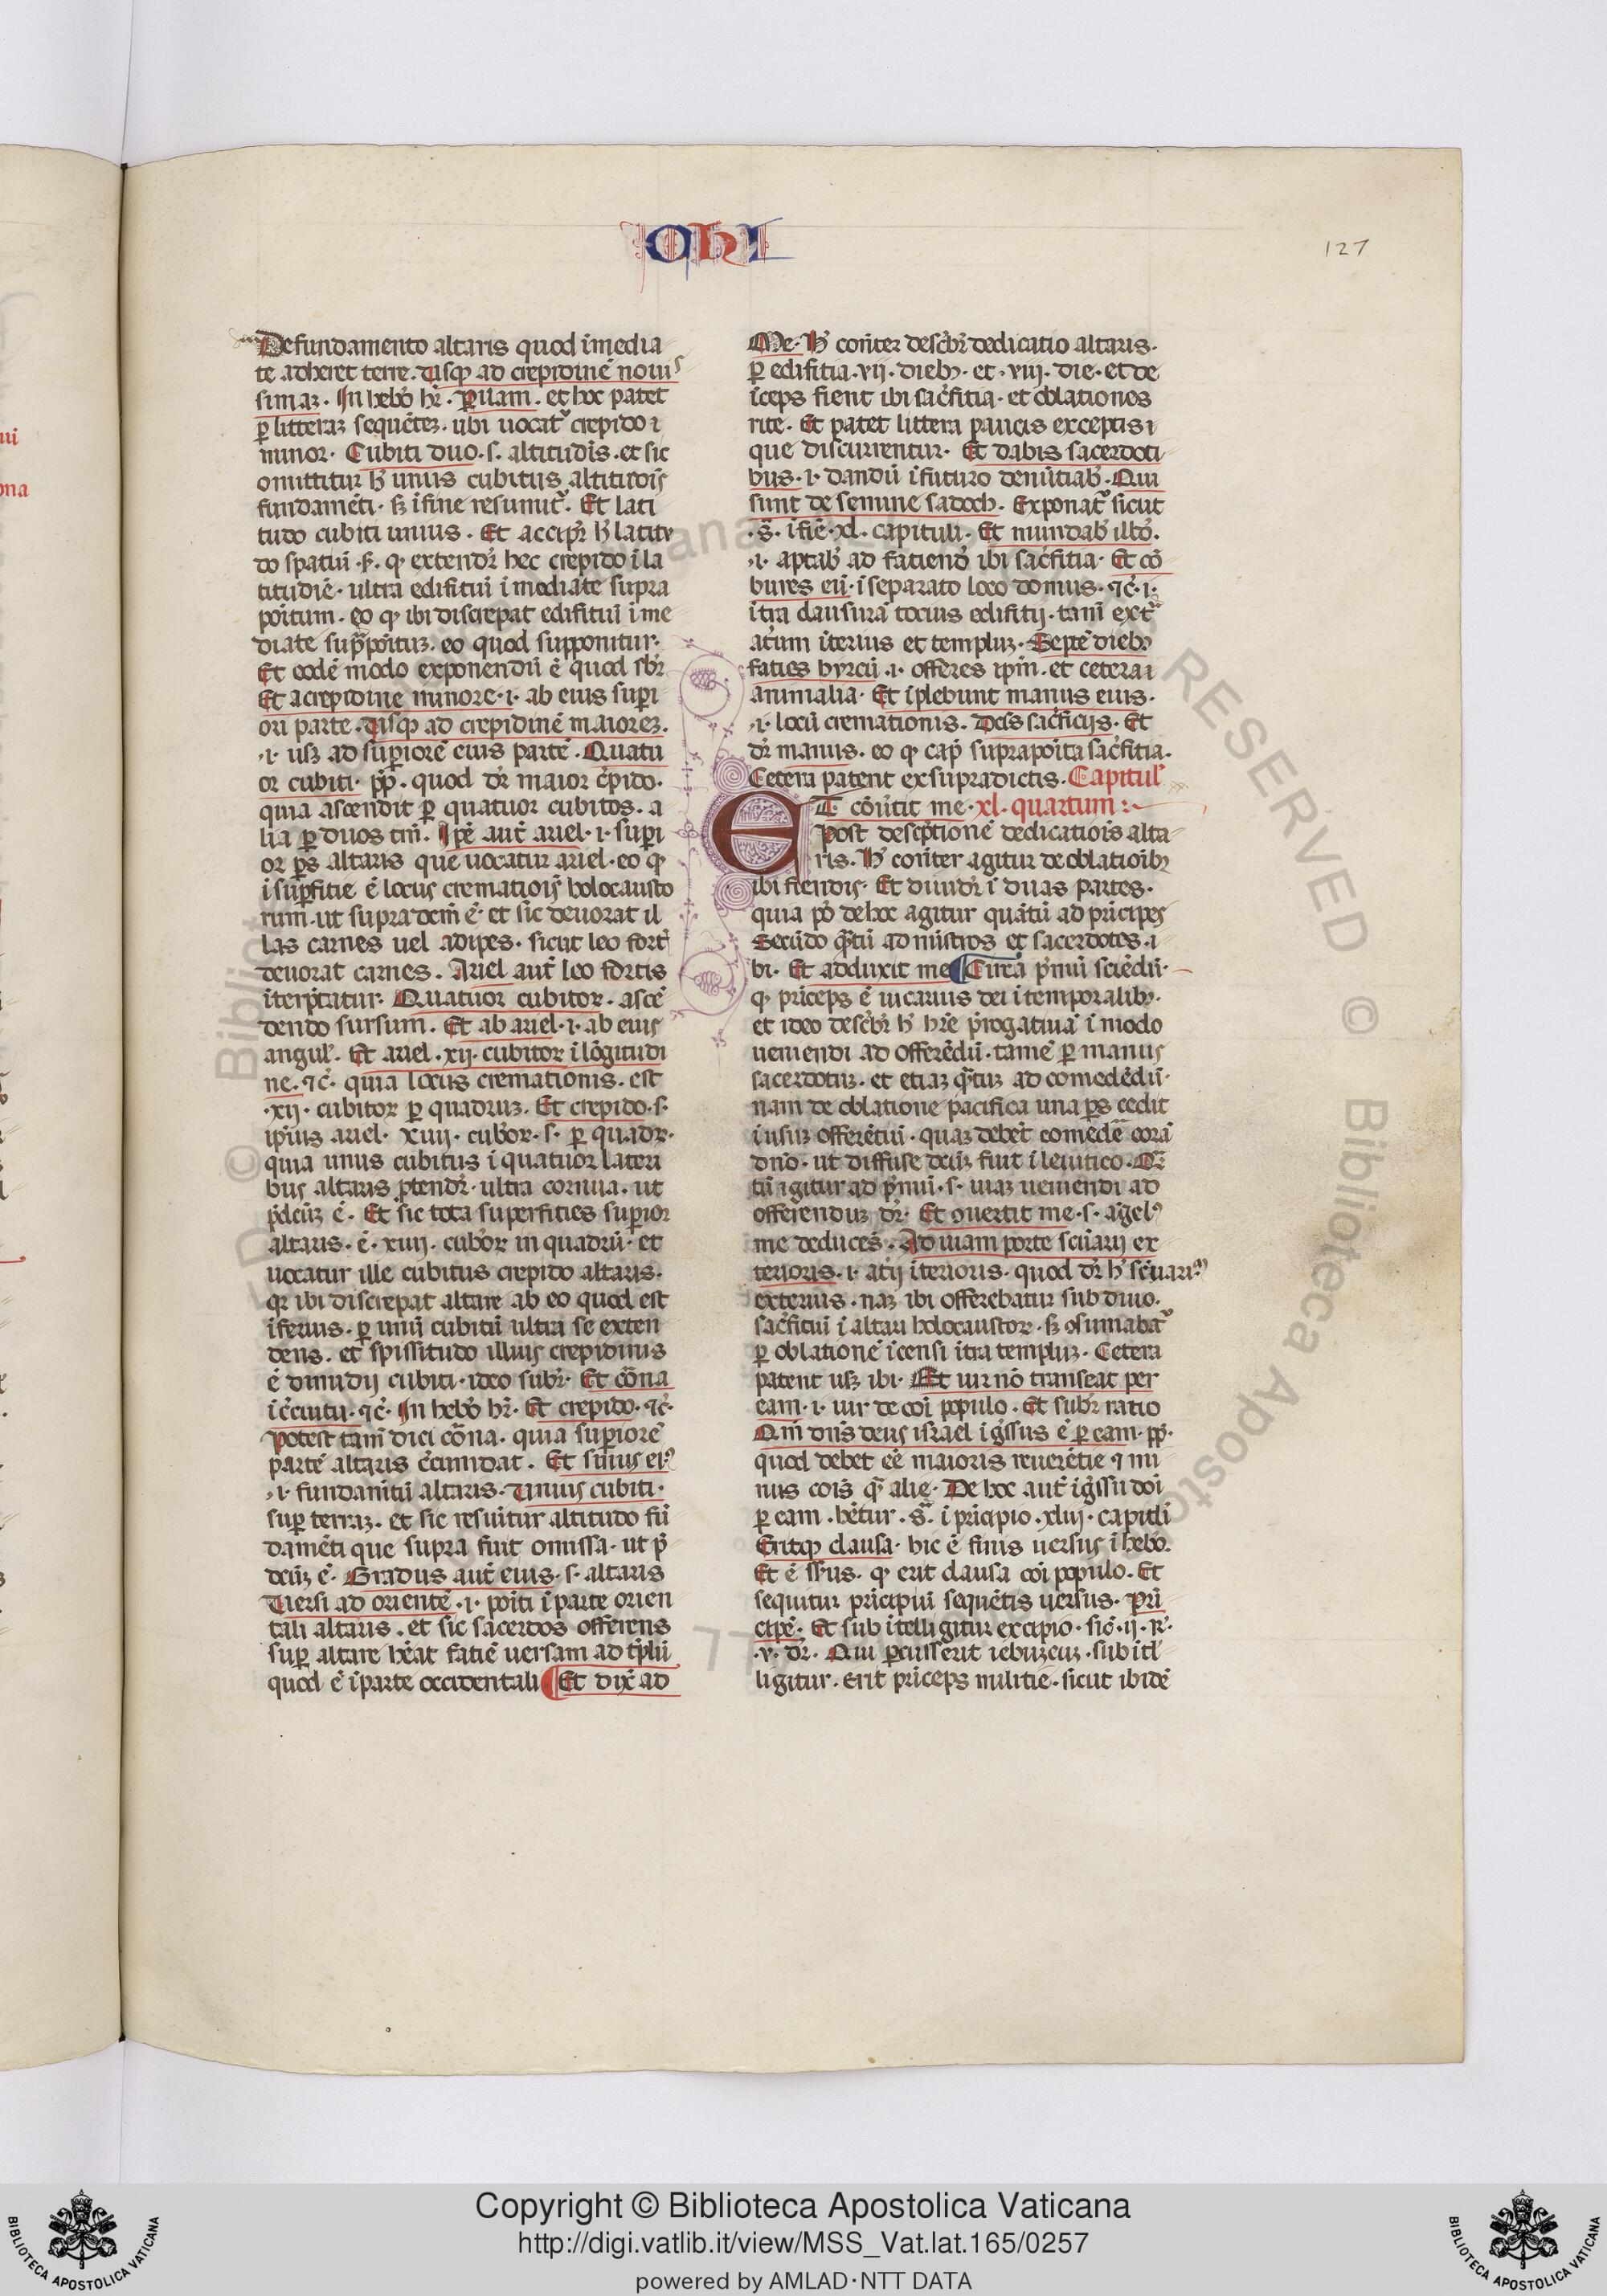 CHI
127
De fundamento altaris quod ĩmedia
te adheret terre. Usq3 ad crepidinẽ nouis
simaz. In hebřo hr̃. Pilam. et hoc patet
p̱ litteraz sequẽtez. ubi uocat᷑ crepido ı
minor. Cubiti duo .s. altitudĩs. et sic
omittitur h̃ unus cubitus altitĩois
fundamẽti. s3 ĩ fine resumit᷑. Et lati
tudo cubiti unius. Et accip̃r h̃ latitu
do spatiũ .s. q̃ extendr̃ hec crepido ĩ la
titudiẽ. ultra edifitiuĩ ĩmediate supra
poĩtum. eo q̃ ibi discrepat edifitiuĩ ĩme
diate sup̃poĩtuz. eo quod supponitur.
Et eodẽ modo exponendũ ẽ quod sbr̃
Et a crepidine minore .i. ab eius sup̱i
ori parte. Usq3 ad crepidinẽ maiorez.
.i. us3 ad sup̱iorẽ eius partẽ. Quatu
or cubiti. pp̃. quod dr̃ maior c̃pido.
quia ascendit p̱ quatuor cubitos. a
lia p̱ duos tm̃. Ip̃e aut̃ ariel .i. sup̱i
or p̱s altaris que uocatur ariel. eo q̃
ĩ sup̱fitie ẽ locus crematiõis holocausto
rum. ut supra dcm̃ ẽ. et sic deuorat il
las carnes uel adipes. sicut leo fort̃
deuorat carnes. Ariel aut̃ leo fortis
ĩterp̃tatur. Quatuor cubitor̃. ascẽ
dendo sursum. Et ab ariel .i. ab eius
angul̃. Et ariel .xij. cubitor̃ ĩ lõgitudi
ne. ⁊c̃. quia locus cremationis. est
.xij. cubitor̃ p̱ quadruz. Et crepido .s.
ip̃ius ariel. xiiij. cubor̃ .s. p̱ quadr̃.
quia unus cubitus ĩ quatuor lateri
bus altaris p̃tendr̃. ultra cornua. ut
p̃dcũ3 ẽ. Et sic tota superfities sup̱ior
altaris. ẽ. xiiij. cubor̃ in quadrũ. et
uocatur ille cubitus crepido altaris.
qr̃ ibi discrepat altare ab eo quod est
ĩferius. p̱ unũ cubitũ ultra se exten
dens. et spissitudo illius crepidinis
ẽ dimidij cubiti. ideo subr̃. Et cõna
ĩ c̃cuitu. ⁊c̃. In hebřo hr̃. Et crepido. ⁊c̃.
Potest tam̃ dici cõna. quia sup̱iorẽ
partẽ altaris c̃cumdat. Et sinus ei᷒
.i. fundam̃tũ altaris. Unius cubiti.
sup̱ terraz. et sic resuĩtur altitudo fũ
damẽti que supra fuit omissa. ut p̃
dcũ3 ẽ. Gradus aut̃ eius .s. altaris
Uersi ad orientẽ .i. poĩti ĩ parte orien
tali altaris. et sic sacerdos offerens
sup̱ altare hẽat fatiẽ uersam ad tp̃lũ
quod ẽ ĩ parte occidentali ¶ Et dix̃ ad
Me. H̃ cõnter descbr̃ dedicatio altaris.
p̱ edifitia .vij. dieb3. et .viij. die. et de
ĩceps fient ibi sac̃fitia. et oblationes
rite. Et patet littera paucis exceptis ı
que discurrentur. Et dabis sacerdoti
bus .i. dandũ ĩ futuro denũtiab̃. Qui
sunt de semine sadoch. Exponat᷑ sicut
.s̃. ĩ fiẽ .xl. capituli. Et mundab̃ illõ.
.i. aptab̃ ad fatiendũ ibi sac̃fitia. Et cõ
bures eũ. ĩ separato loco domus. ⁊c̃ .i.
ĩtra clausurã totius edifitij. tam̃ ext᷑
at̃um ĩterius et templuz. Septẽ dieb3
faties hyrcũ .i. offeres ip̃m. et cetera ı
animalia. Et ĩplebunt manus eius.
.i. locũ cremationis. Dc̃s sac̃ficijs. Et
dr̃ manus. eo q̃ cap̃ suprapoĩta sac̃fitia.
Cetera patent ex supradictis. Capitul̃
ET cõũtit me. xl. quartum :~
Post descp̃tionẽ dedicatiõis alta
ris. H̃ cõnter agitur de oblatiõib3
ibi fiendis. Et diuidr̃ ĩ duas partes.
quia p̃o de hoc agitur quãtũ ad prĩcipes
Secũdo q̃tũ ad mĩstros et sacerdotes. ı
bi. Et adduxit me ¶ Circa p̃mũ sciẽdũ.
q̃ prĩceps ẽ uicarius dei ĩ temporalib3.
et ideo descbr̃ h̃ hr̃e p̃rogatiuã ĩ modo
ueniendi ad offerẽdũ. tamẽ p̱ manus
sacerdotuz. et etiaz q̃tuz ad comedẽdũ.
nam de oblatione pacifica una p̱s cedit
ĩ usuz offerẽtiuĩ. quaz debet comedẽ corã
dñõ. ut diffuse dcũ3 fuit ĩ leuitico. Q̃
tũ igitur ad p̃mũ .s. uiaz ueniendi ad
offerenduz dr̃. Et ↄuertit me .s. ãgel᷒
me deducẽs. Ad uiam porte scũarij ex
terioris .i. atrij ĩterioris. quod dr̃ h̃ scũari᷒
exterius. naz ibi offerebatur sub diuo.
sac̃fitiũ ĩ altari holocaustor̃. s3 ↄsumabat᷑
p̱ oblationẽ ĩcensi ĩtra templuz. Cetera
patent us3 ibi. Et uir nõ transeat per
eam .i. uir de coĩ populo. Et subr̃ ratio
Qm̃ dñs deus israel ĩgr̃ssus ẽ p̱ eam. pp̃.
quod debet eẽ maioris reuerẽtie ⁊ mi
nus coĩs q̃ alie. De hoc aut̃ ĩgr̃ssu doĩ
p̱ eam. hẽtur .s̃. ĩ prĩcipio .xliij. capitli
Eritq3 clausa. hic ẽ finis uersus ĩ hebřo.
Et ẽ ss̃us. q̃ erit clausa coĩ populo. Et
sequitur prĩcipiũ sequẽtis uersus. Prĩ
cipẽ. Et sub ĩtelligitur excipio. sic̃ .ij. R̃.
.v. dr̃. Qui p̱cusserit iebuzeuz. sub ĩtl̃
ligitur. erit prĩceps militie. sicut ibidẽ
Copyright © Biblioteca Apostolica Vaticana
http://digi.vatlib.it/view/MSS_Vat.lat.165/0257
powered by AMLAD·NTT DATA
BIBLIOTECA APOSTOLICA VATICANA
BIBLIOTECA APOSTOLICA VATICANA